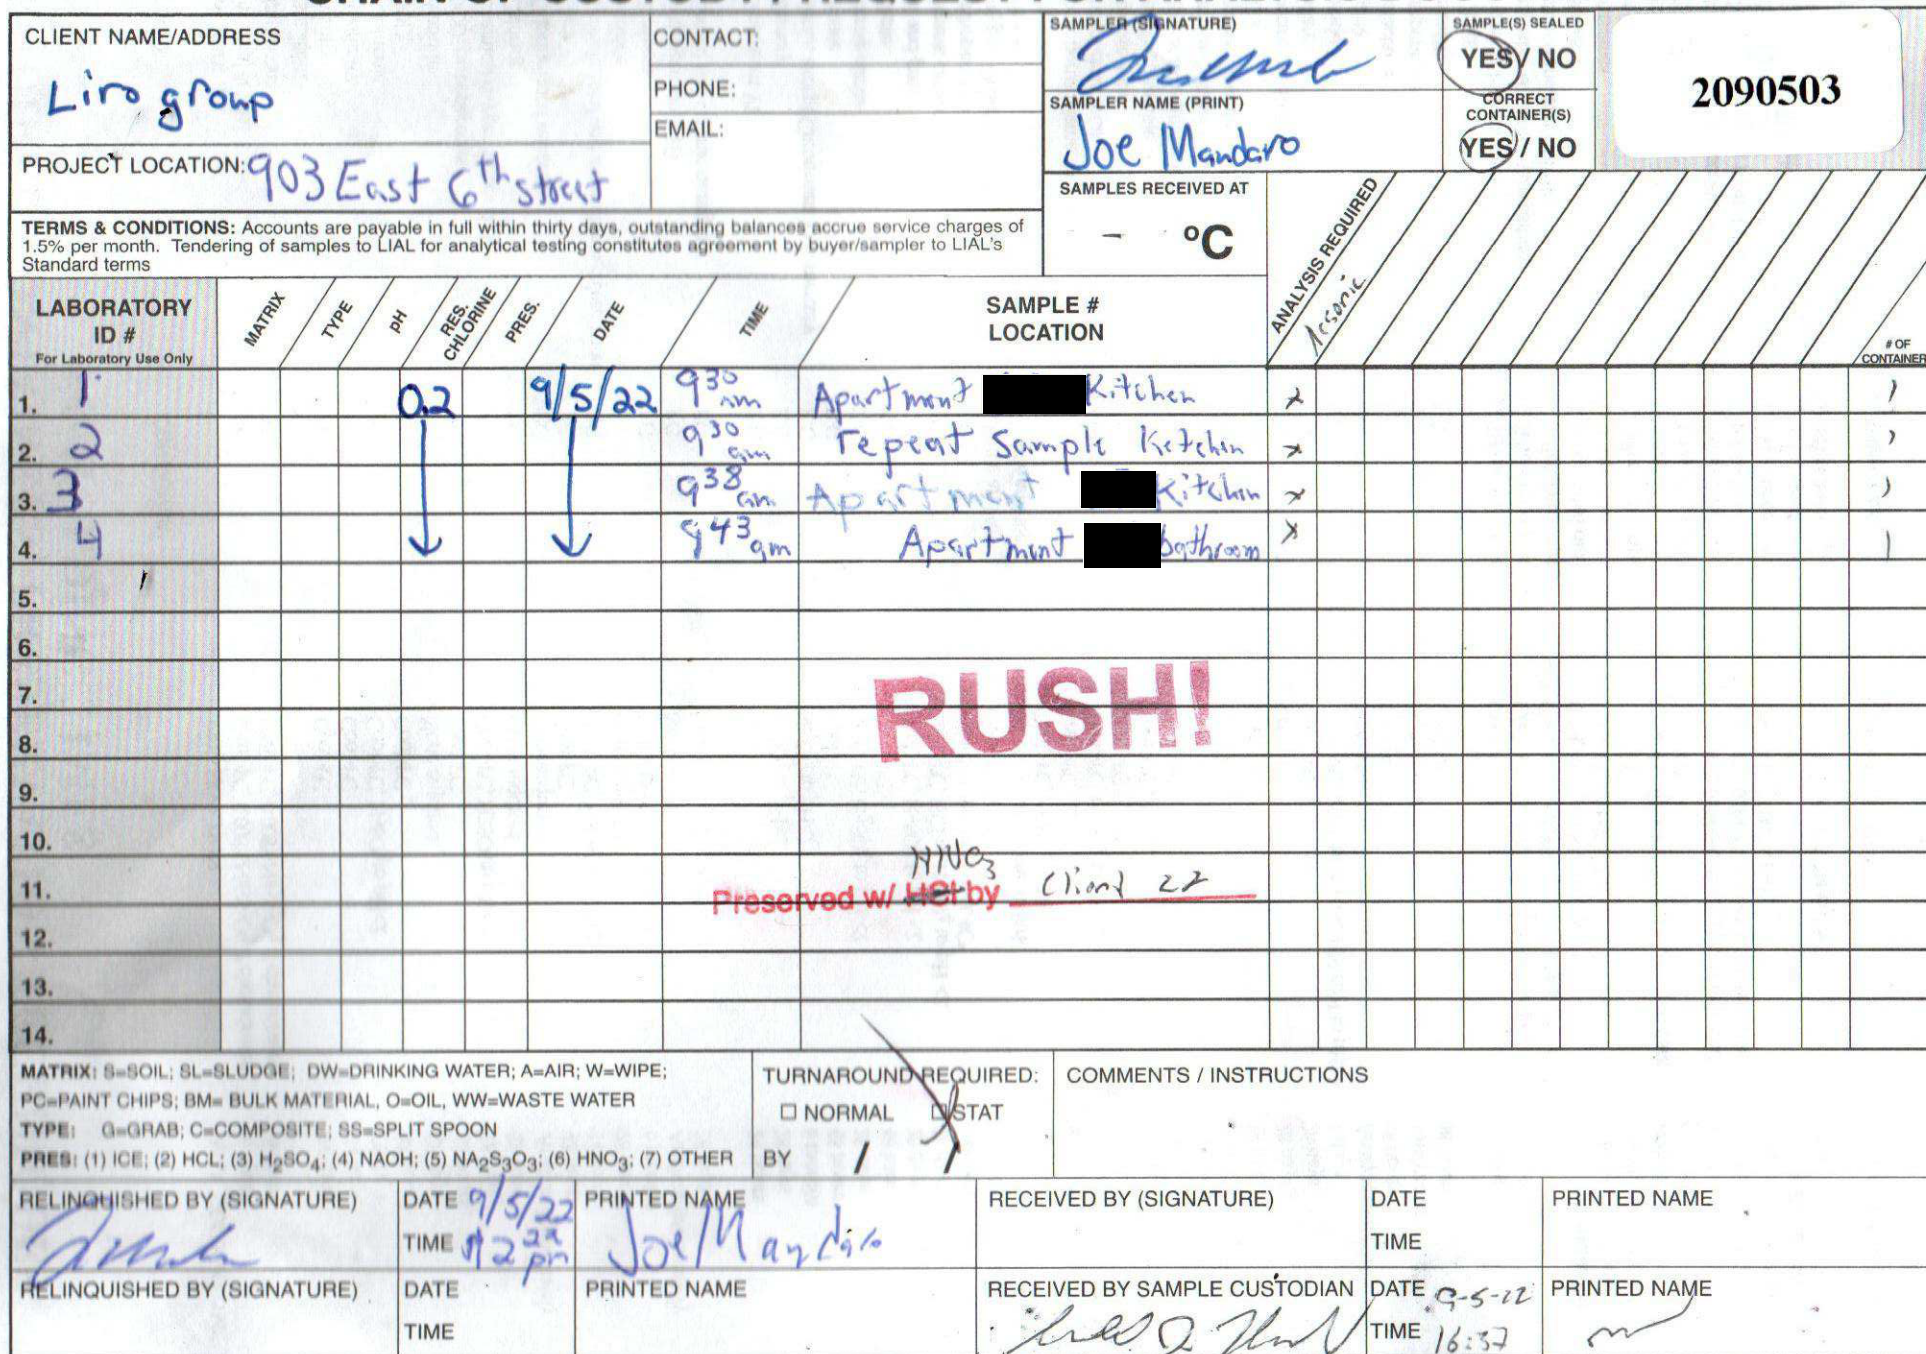 CLIENT NAME/ADDRESS
Liro group
PROJECT LOCATION: 903 East 6th street
CONTACT:
PHONE:
EMAIL:
SAMPLER (SIGNATURE)
SAMPLER NAME (PRINT)
Joe Mandaro
SAMPLE(S) SEALED
YES / NO
CORRECT
CONTAINER(S)
YES / NO
2090503
TERMS & CONDITIONS: Accounts are payable in full within thirty days, outstanding balances accrue service charges of
1.5% per month. Tendering of samples to LIAL for analytical testing constitutes agreement by buyer/sampler to LIAL's
Standard terms
SAMPLES RECEIVED AT
- °C
ANALYSIS REQUIRED
Arsenic
LABORATORY
ID #
For Laboratory Use Only
MATRIX
TYPE
pH
RES.
CHLORINE
PRES.
DATE
TIME
SAMPLE #
LOCATION
# OF
CONTAINER
1. 1 0.2 9/5/22 9 30 am Apartment Kitchen x 1
2. 2 9 30 am repeat Sample Kitchen x 1
3. 3 9 38 am Apartment Kitchen x 1
4. 4 9 43 am Apartment bathroom x 1
5.
6.
7.
RUSH!
8.
9.
10.
HNO3
11. Preserved w/ HCl by Client
12.
13.
14.
MATRIX: S=SOIL; SL=SLUDGE; DW=DRINKING WATER; A=AIR; W=WIPE;
PC=PAINT CHIPS; BM= BULK MATERIAL, O=OIL, WW=WASTE WATER
TYPE: G=GRAB; C=COMPOSITE; SS=SPLIT SPOON
PRES: (1) ICE; (2) HCL; (3) H2SO4; (4) NAOH; (5) NA2S3O3; (6) HNO3; (7) OTHER
TURNAROUND REQUIRED:
☐ NORMAL ☐ STAT
BY / /
COMMENTS / INSTRUCTIONS
RELINQUISHED BY (SIGNATURE)
DATE 9/5/22
TIME pm
PRINTED NAME
Joe Mandaro
RECEIVED BY (SIGNATURE)
DATE
TIME
PRINTED NAME
RELINQUISHED BY (SIGNATURE)
DATE
TIME
PRINTED NAME
RECEIVED BY SAMPLE CUSTODIAN
DATE 9-5-22
TIME 16:37
PRINTED NAME